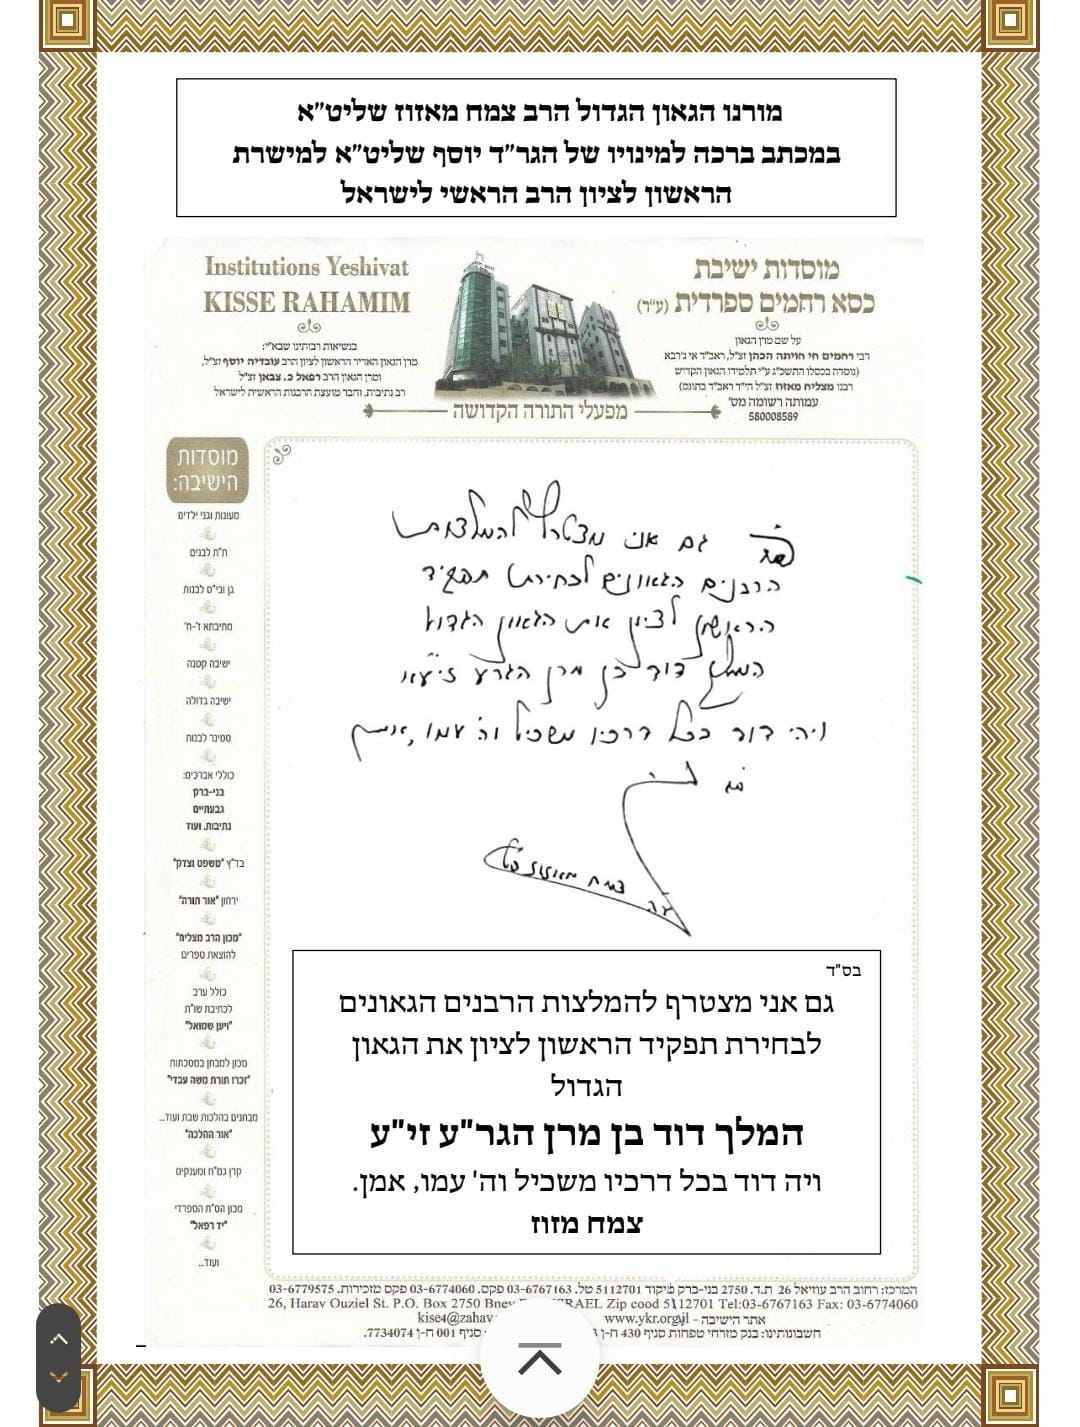 מורנו הגאון הגדול הרב צמח מאזוז שליט"א
במכתב ברכה למינויו של הגר"ד יוסף שליט"א למישרת
הראשון לציון הרב הראשי לישראל
Institutions Yeshivat
KISSE RAHAMIM
בנשיאות רבותינו שבא"י:
מרן הגאון האדיר הראשון לציון הרב עובדיה יוסף זצ"ל,
ומרן הגאון הרב רפאל כ. צבאן זצ"ל
רב נתיבות, וחבר מועצת הרבנות הראשית לישראל
מוסדות ישיבת
כסא רחמים ספרדית (ע"ר)
על שם מרן הגאון
רבי רחמים חי חויתה הכהן זצ"ל, ראב"ד אי ג'רבא
(נוסדה בכסלו התשכ"ג ע"י תלמידו הגאון הקדוש
רבנו מצליח מאזוז זצ"ל הי"ד ראב"ד בתונס)
עמותה רשומה מס'
580008589
מפעלי התורה הקדושה
מוסדות
הישיבה:
מעונות וגני ילדים
ת"ת לבנים
גן ובי"ס לבנות
מתיבתא ז'-ח'
ישיבה קטנה
ישיבה גדולה
סמינר לבנות
כוללי אברכים:
בני-ברק
גבעתיים
נתיבות. ועוד
בד"ץ "משפט וצדק"
ירחון "אור תורה"
"מכון הרב מצליח"
להוצאת ספרים
כולל ערב
לכתיבת שו"ת
"ויען שמואל"
מכון למבחן במסכתות
"זכרו תורת משה עבדי"
מבחנים בהלכות שבת ועוד...
"אור ההלכה"
קרן גמ"ח ומענקים
מכון הס"ת הספרדי
"יד רפאל"
ועוד...
גם אני מצטרף להמלצות
הרבנים הגאונים לבחירת תפקיד
הראשון לציון את הגאון הגדול
המלך דוד בן מרן הגרע זיעא
ויהי דוד בכל דרכיו משכיל וה' עמו, אמן
צמח מאזוז
בס"ד
גם אני מצטרף להמלצות הרבנים הגאונים
לבחירת תפקיד הראשון לציון את הגאון
הגדול
המלך דוד בן מרן הגר"ע זי"ע
ויה דוד בכל דרכיו משכיל וה' עמו, אמן.
צמח מזוז
המרכז: רחוב הרב עוזיאל 26 ת.ד. 2750 בני-ברק מיקוד 5112701 טל. 03-6767163 פקס. 03-6774060 פקס מזכירות. 03-6779575.
26, Harav Ouziel St. P.O. Box 2750 Bney Zip cood 5112701 Tel:03-6767163 Fax: 03-6774060
אתר הישיבה - www.ykr.org.il kise4@zahav
חשבונותינו: בנק מזרחי טפחות סניף 430 ח-ן סניף 001 ח-ן 7734074.